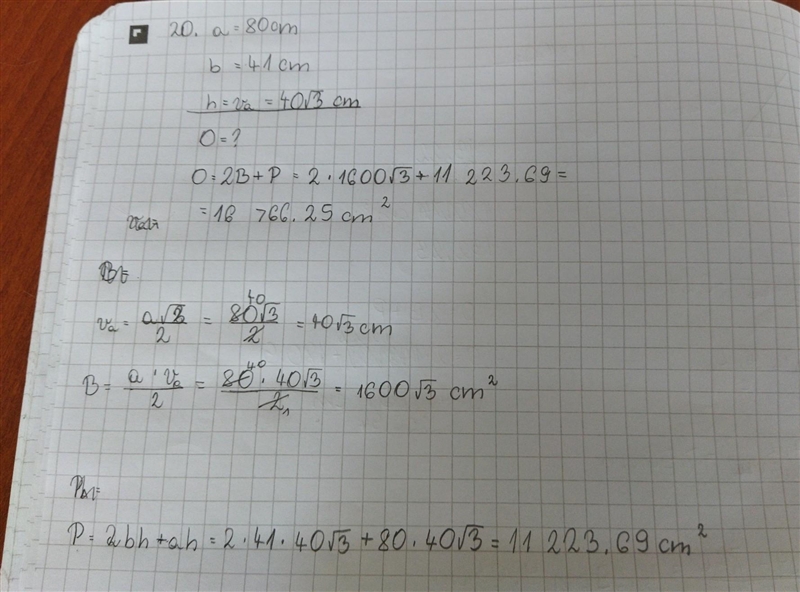 20. a = 80cm
b = 41 cm
h = va = 40√3 cm
O = ?
O = 2B + P = 2 · 1600√3 + 11 223.69 =
= 16 766.25 cm²
va = a√3/2 = 80√3/2 = 40√3 cm
40
B = a · va/2 = 80 · 40√3/2 = 1600√3 cm²
40
1
P = 2bh + ah = 2 · 41 · 40√3 + 80 · 40√3 = 11 223.69 cm²